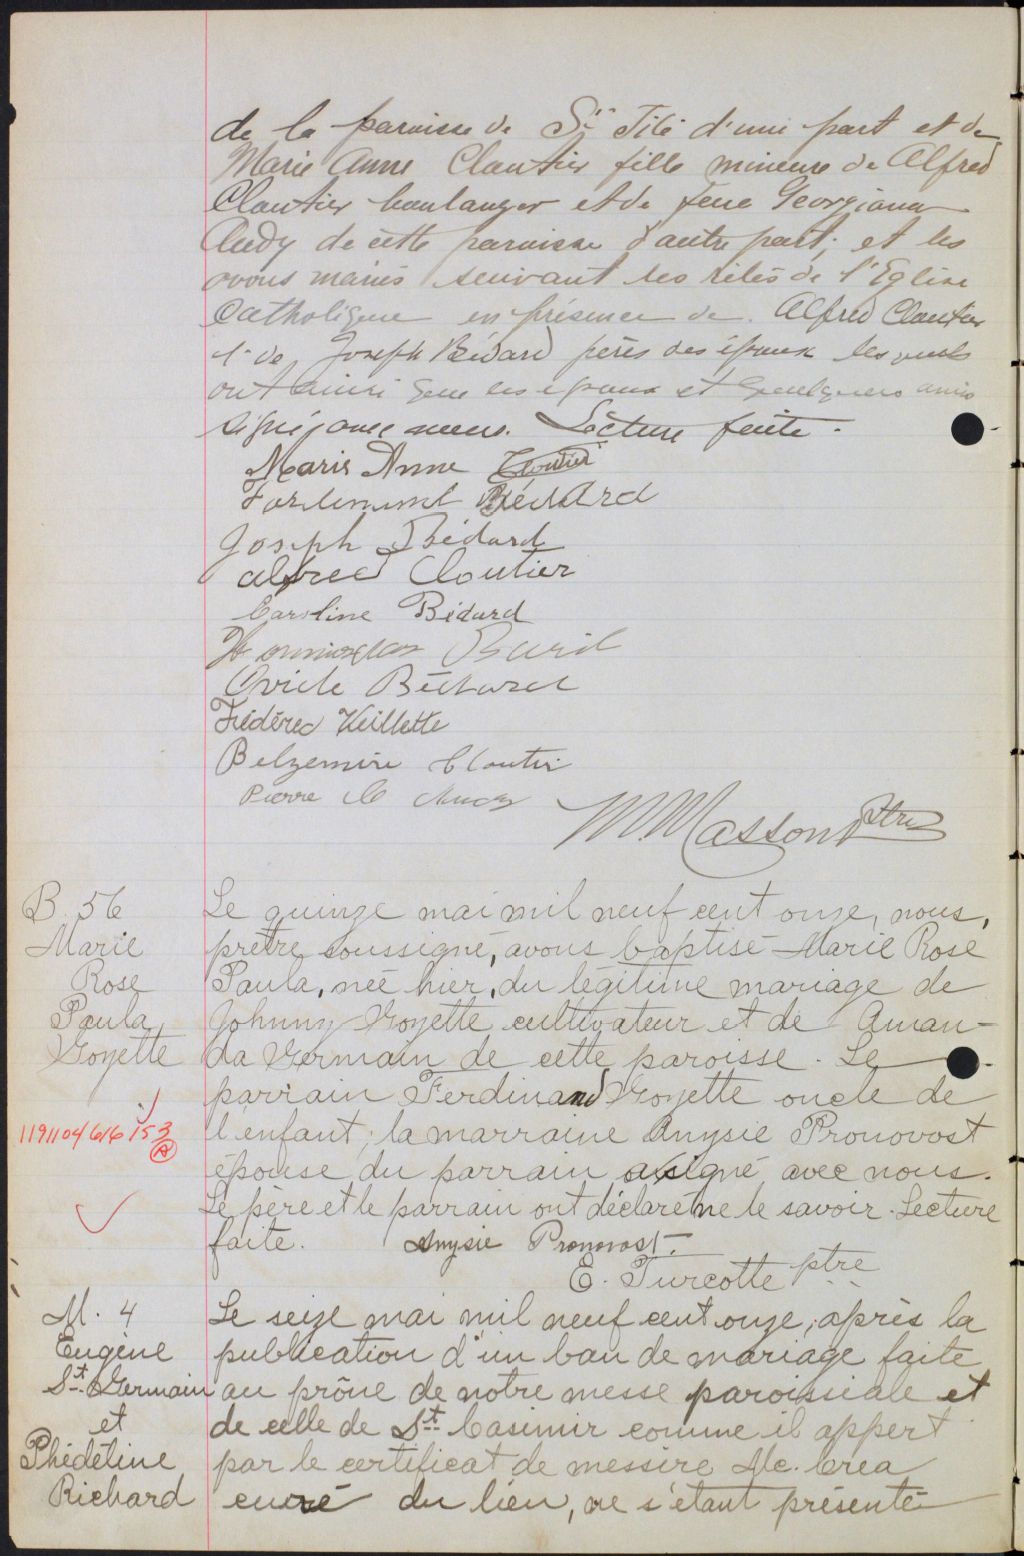 de la paroisse de St Tite d'une part et de
Marie Anne Cloutier fille mineure de Alfred
Cloutier boulanger et de feue Georgiana
Audy de cette paroisse d'autre part; et les
avons mariés suivant les rites de l'Eglise
Catholique en présence de Alfred Cloutier
et de Joseph Bédard pères des époux lesquels
ont ainsi que les époux et quelques amis
signé avec nous. Lecture faite.
Marie Anne Cloutier
Bédard
Joseph Bédard
Alfred Cloutier
Caroline Bédard
Baril
Ovide Bédard
Frédéric Veillette
Belzemire Cloutier
Pierre
M Masson Ptre
B. 56
Marie
Rose
Paula
Goyette
1191104616153
R
Le quinze mai mil neuf cent onze, nous,
prêtre soussigné, avons baptisé Marie Rose
Paula, née hier, du légitime mariage de
Johnny Goyette cultivateur et de Aman-
da Germain de cette paroisse. Le
parrain Ferdinand Goyette oncle de
l'enfant; la marraine Anysie Pronovost
épouse du parrain a signé avec nous.
Le père et le parrain ont déclaré ne le savoir. Lecture
faite. Anysie Pronovost.
E. Turcotte ptre
M. 4
Eugène
St. Germain
et
Phédéline
Richard
Le seize mai mil neuf cent onze, après la
publication d'un ban de mariage faite
au prône de notre messe paroissiale et
de celle de St. Casimir comme il appert
par le certificat de messire Mc. Crea
curé du lieu, ne s'étant présenté